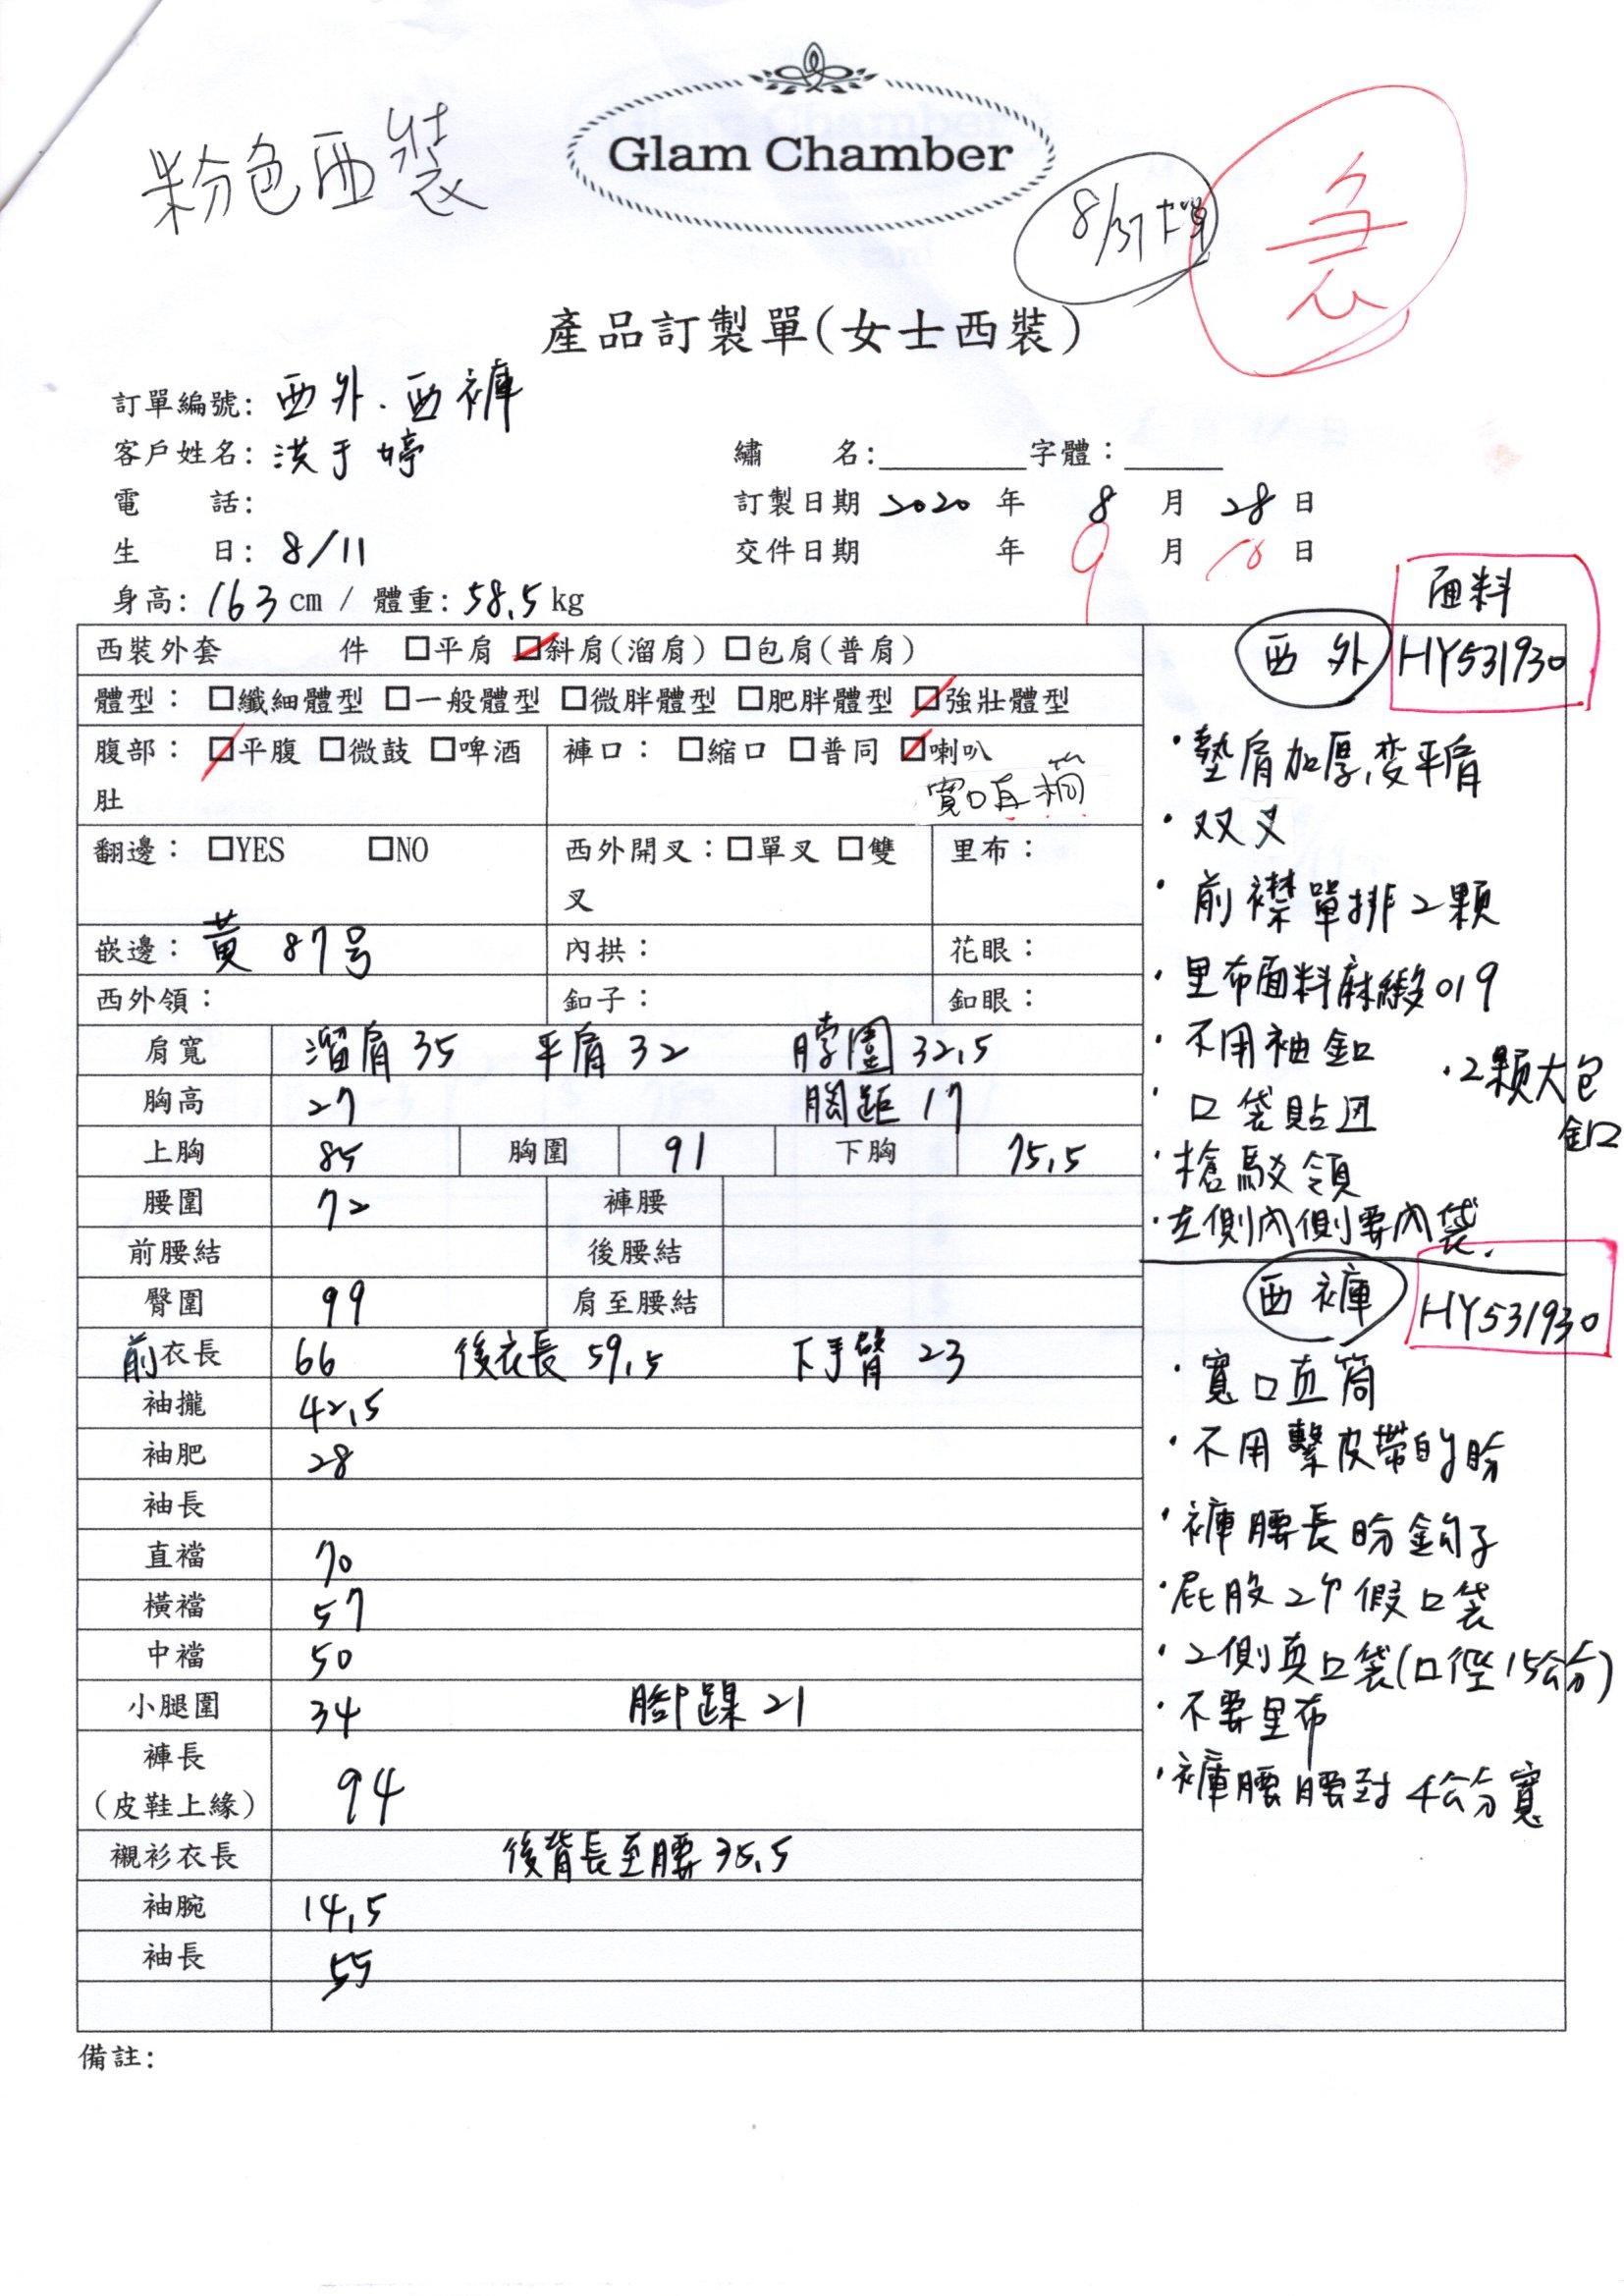 Glam Chamber
粉色西裝
急
產品訂製單(女士西裝)
訂單編號: 西外.西褲
客戶姓名: 洪于婷
繡 名: 字體:
電 話:
訂製日期 2020 年 8 月 28 日
生 日: 8/11
交件日期 年 9 月 10 日
身高: 163 cm / 體重: 58.5 kg
西裝外套 件 □平肩 ☑斜肩(溜肩) □包肩(普肩)
體型: □纖細體型 □一般體型 □微胖體型 □肥胖體型 ☑強壯體型
腹部: ☑平腹 □微鼓 □啤酒肚
褲口: □縮口 □普同 ☑喇叭
寬口直筒
翻邊: □YES □NO
西外開叉:□單叉 □雙叉
里布:
嵌邊: 黃 87号
內拱:
花眼:
西外領:
釦子:
釦眼:
肩寬 溜肩 35 平肩 32 脖圍 32.5
胸高 27 胸距 17
上胸 85 胸圍 91 下胸 75.5
腰圍 72 褲腰
前腰結 後腰結
臀圍 99 肩至腰結
前衣長 66 後衣長 59.5 下手臂 23
袖攏 42.5
袖肥 28
袖長
直襠 70
橫襠 57
中襠 50
小腿圍 34 腳踝 21
褲長
(皮鞋上緣) 94
襯衫衣長 後背長至腰 35.5
袖腕 14.5
袖長 55
備註:
面料
西外 HY531930
·墊肩加厚,变平肩
·双叉
·前襟單排2顆
·里布面料麻緞019
·不用袖釦
·2顆大包釦
·口袋貼迅
·槍駁領
·左側內側要內袋.
西褲 HY531930
·寬口直筒
·不用繫皮帶的盼
·褲腰長盼鉤子
·屁股2个假口袋
·2側真口袋(口徑15公分)
·不要里布
·褲腰腰封4公分寬